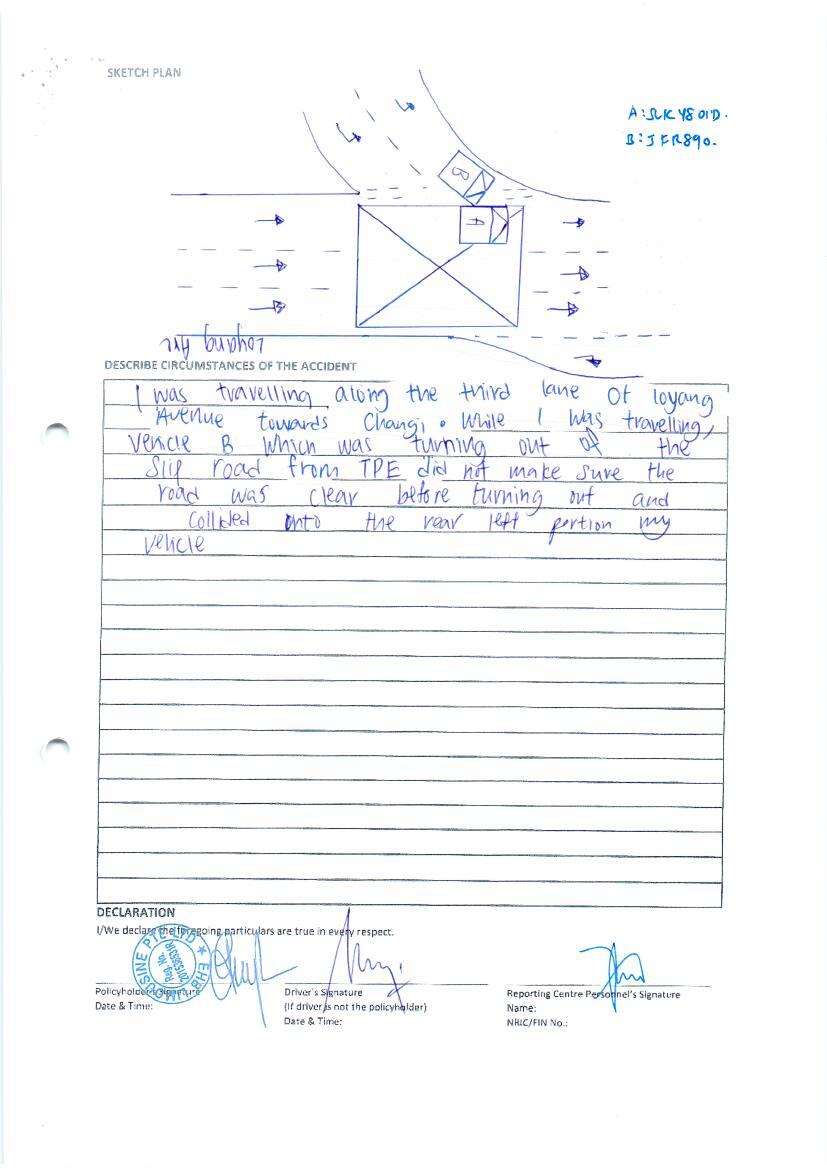 SKETCH PLAN
B: JFR890.
B
A
Loyang Ave
DESCRIBE CIRCUMSTANCES OF THE ACCIDENT
I was travelling along the third lane of loyang
Avenue towards Changi. While I was travelling,
vehicle B which was turning out of the
Slip road from TPE did not make sure the
road was clear before turning out and
collided onto the rear left portion my
vehicle
DECLARATION
I/We declare the foregoing particulars are true in every respect.
Policyholder's Signature
Date & Time:
Driver's Signature
(If driver is not the policyholder)
Date & Time:
Reporting Centre Personnel's Signature
Name:
NRIC/FIN No.: